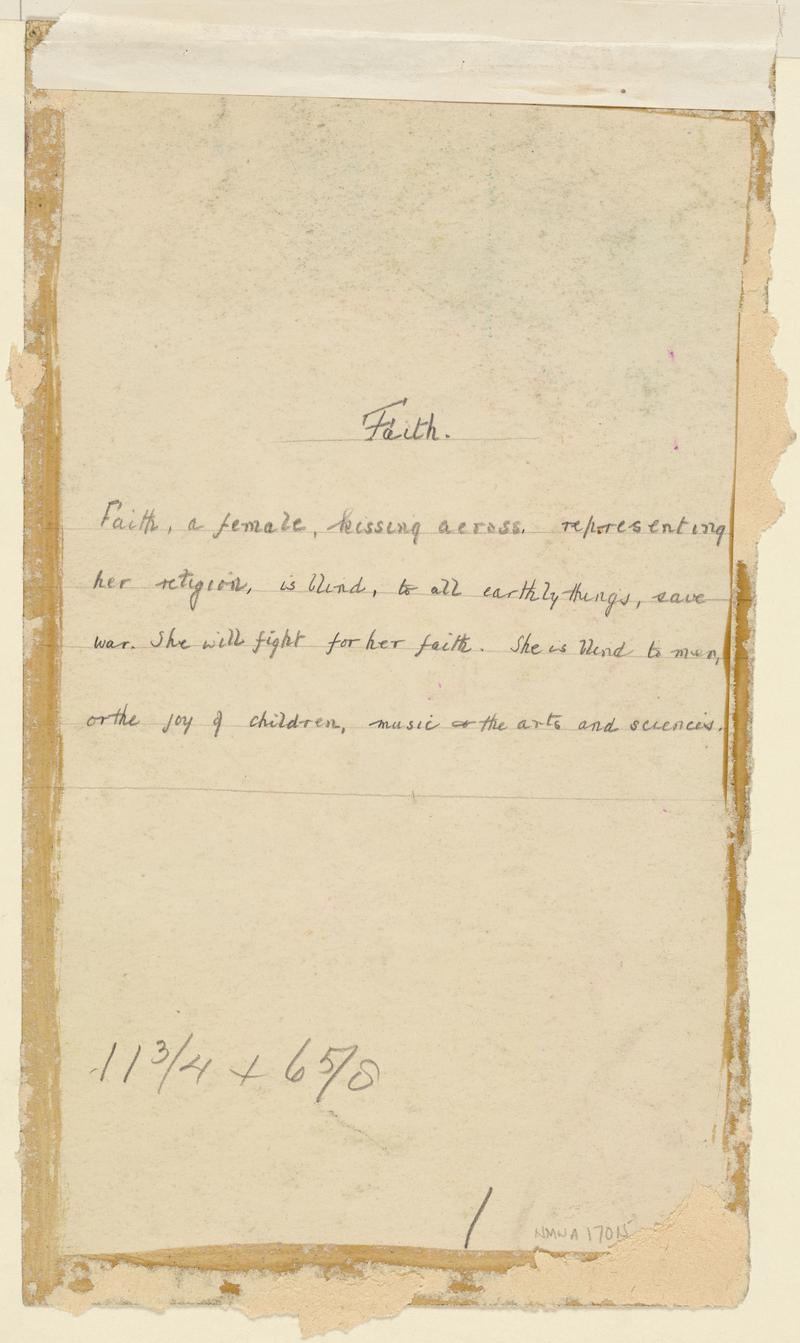 Faith.
Faith, a female, kissing across. representing
her religion, is blind, to all earthly things, save
war. She will fight for her faith. She is blind to men,
or the joy of children, music or the arts and sciences.
11 3/4 + 6 5/8
1
NMWA 1701